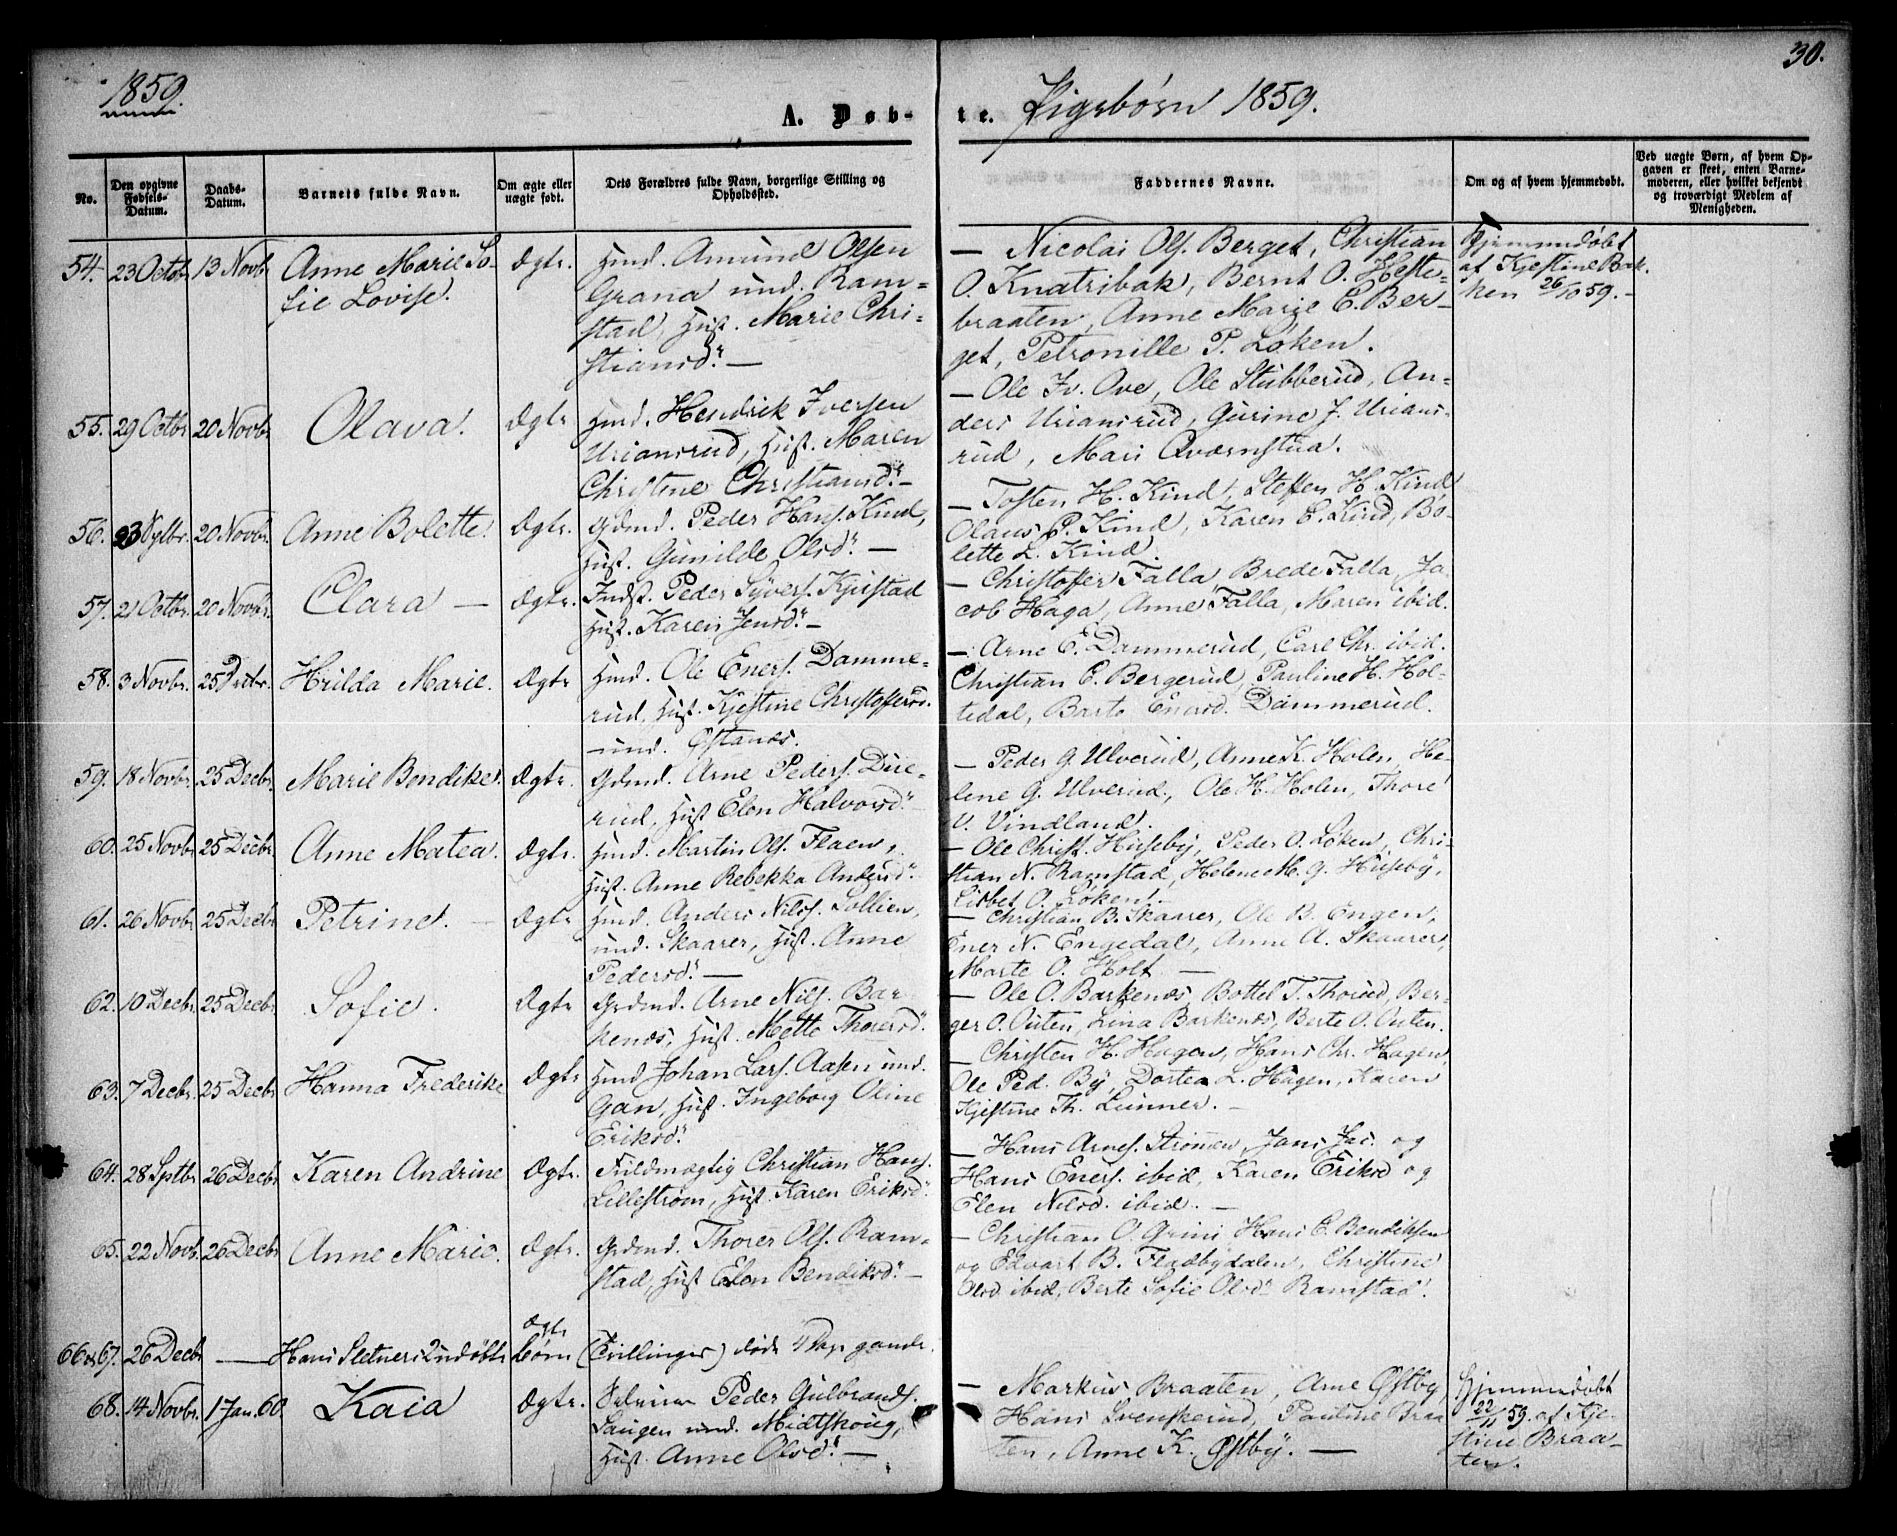 1859.
30.
A. Døb-
te. Pigebørn 1859.
No.
Den opgivne Fødsels-Datum.
Daabs-Datum.
Barnets fulde Navn.
Om ægte eller uægte født.
Dets Forældres fulde Navn, borgerlige Stilling og Opholdssted.
Faddernes Navne.
Om og af hvem hjemmedøbt.
Ved uægte Børn, af hvem Opgaven er skeet, enten Barnemoderen, eller hvilket bekjendt og troværdigt Medlem af Menigheden.
54. 23 Octobr. 13 Novbr. Anne Marie So-
fie Lovise.
Ægte.
Hmd. Amund Olsen
Grana und. Ram-
stad, Hust. Marie Chri-
stiansd. —
— Nicolai Ols. Berget, Christian
O. Knatribak, Bernt O. Heste-
braaten, Anne Marie E. Ber-
get, Petronille P. Løken.
Hjemmedøbt
af Kjestine Bak-
ken 26/10 59. —
55. 29 Octbr. 20 Novbr. Olava.
Ægte
Hmd. Hendrik Iversen
Uriansrud, Hust. Maren
Christine Christiansd. —
— Ole Iv. Ove, Ole Stubberud, An-
ders Uriansrud, Gurine J. Urians-
rud, Mari Qværnstua.
56. 23 Sptbr. 20 Novbr. Anne Bolette.
Ægte.
Grdmd. Peder Hans. Kind,
Hust. Gunilde Olsd. —
— Tosten H. Kind, Steffen H. Kind
Olaus P. Kind, Karen E. Kind, Bo-
lette L. Kind.
57. 21 Octbr. 20 Novbr. Clara —
Ægte.
Indst. Peder Syvers. Kjustad
Hust. Karen Jensd. —
— Christoffer Falla, Brede Falla, Ja-
cob Haga, Anne Falla, Maren ibid.
58. 3 Novbr. 25 Decbr. Hilda Marie.
Ægte
Hmd. Ole Eners. Damme-
rud, Hust. Kjestine Christoffersd.
— und. Østanes.
— Arne E. Dammerud, Carl Chr. ibid.
Christian E. Bergerud, Pauline H. Hol-
tedal, Barte Enersd. Dammerud.
59. 18 Novbr. 25 Decbr. Marie Bendike.
Ægte.
Grdmd. Arne Peders. Due-
rud, Hust Elen Halvorsd.
— Peder G. Ulverud, Anne K. Holen, He-
lene G. Ulverud, Ole H. Holen, Thore
V. Vindland.
60. 25 Novbr. 25 Decbr. Anne Matea.
Ægte.
Hmd. Martin Ols. Flaen,
Hust. Anne Rebekka Andersd.
— Ole Christ. Huseby, Peder O. Løken, Chri-
stian N. Ramstad, Helene M. G. Huseby,
Lisbet O. Løken. —
61. 26 Novbr. 25 Decbr. Petrine. —
Ægte
Hmd. Anders Nils. Sollien,
und. Skaarer, Hust. Anne
Pedersd. —
— Christian B. Skaarer, Ole B. Engen,
Ener N. Engedal, Anne A. Skaarer,
Marte O. Holt —
62. 10 Decbr. 25 Decbr. Sofie.
Ægte
Grdmd. Arne Nils. Bar-
kenæs, Hust. Mette Thoresd.
— Ole O. Barkenæs, Bottel T. Thorud, Ber-
ger O. Outen, Lina Barkenæs, Berte O. Outen.
63. 7 Decbr. 25 Decbr. Hanna Frederike
Ægte
Hmd Johan Lars. Aasen und.
Gan, Hust. Ingeborg Oline
Eriksd.
— Christen H. Hagen, Hans Chr. Hagen
Ole Ped. By, Dortea L. Hagen, Karen
Kjestine Th. Lunner. —
64. 28 Sptbr. 26 Decbr. Karen Andrine
Ægte.
Fuldmægtig Christian Hans.
Lillestrøm, Hust. Karen Eriksd.
— Hans Arnes. Strømen, Jans Jac. og
Hans Eners. ibid, Karen Eriksd og
Elen Nilsd. ibid. —
65. 22 Novb. 26 Decbr. Anne Marie.
Ægte.
Grdmd. Thorer Ols. Ram-
stad, Hust Elen Bendiksd. —
— Christian O. Grini Hans E. Bendiksen
og Edvart B. Fladbydalen, Christine
Olsd. ibid, Berte Sofie Olsd. Ramstad.
66 og 67. 26 Decbr. — Hans Sletners 2 udøbte
ægte
Børn (Tvillinger) døde 4 Dage gamle.
68. 14 Novbr. 1 Jan. 60 Kaia
Ægte.
Peder Gulbrands.
Laugen und. Midtskoug,
Hust. Anne Olsd. —
— Markus Braaten, Arne Østby,
Hans Svenskerud, Pauline Braa-
ten, Anne K. Østby. —
Hjemmedøbt
22/11 59. af Kje-
stine Braa-
ten.